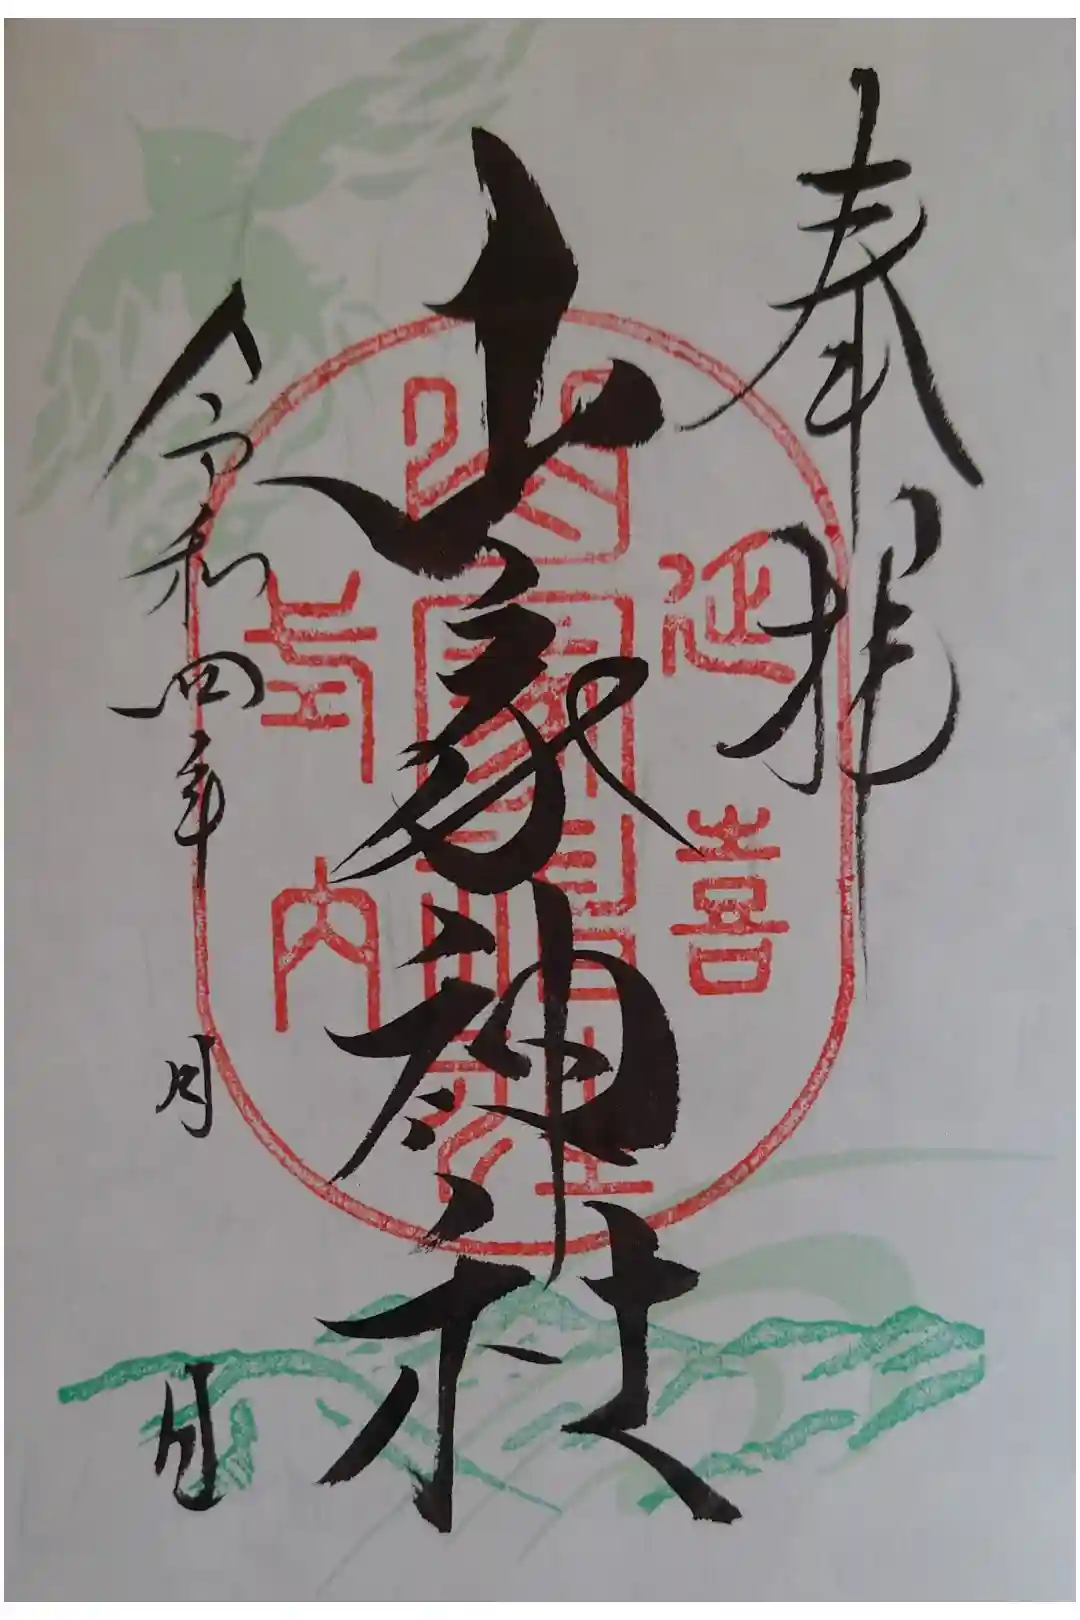 奉拝
山家神社
延喜
式内
山家神社
令和四年 月 日